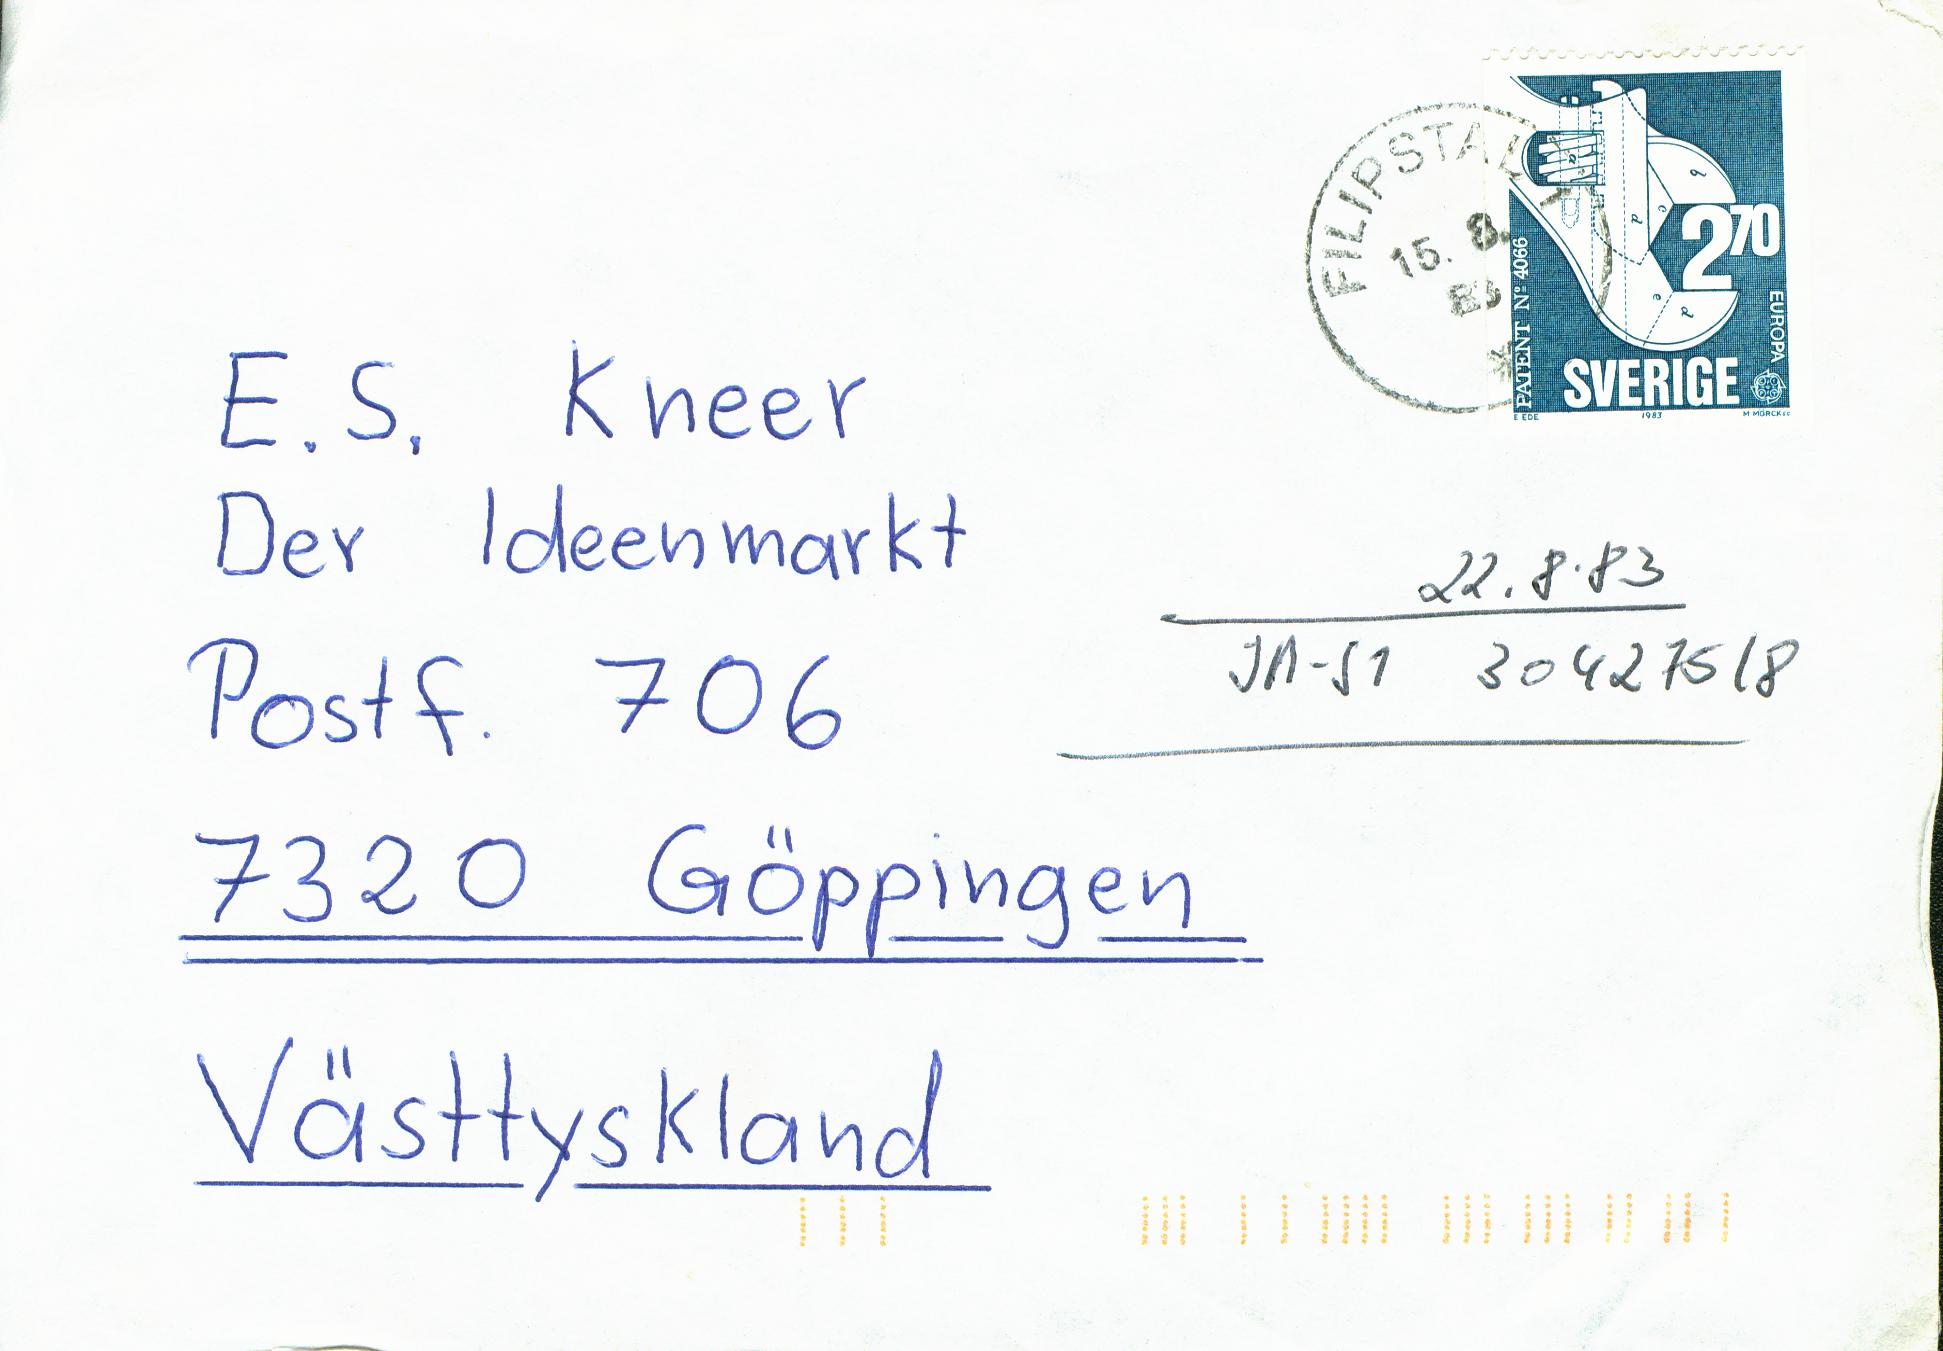 FILIPSTAD
15. 8.
83
PATENT Nº 4066
270
EUROPA
SVERIGE
E EDE 1983 M MÖRCK sc
E.S. Kneer
Der Ideenmarkt
Postf. 706
7320 Göppingen
Västtyskland
22.8.83
30427518